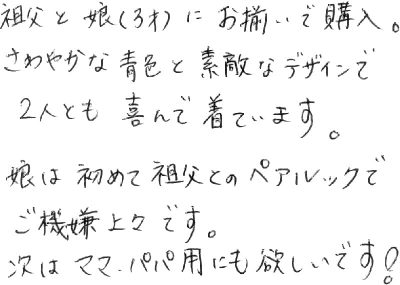 祖父と娘(3才)にお揃いで購入。
さわやかな青色と素敵なデザインで
2人とも喜んで着ています。
娘は初めて祖父とのペアルックで
ご機嫌上々です。
次はママ、パパ用にも欲しいです!